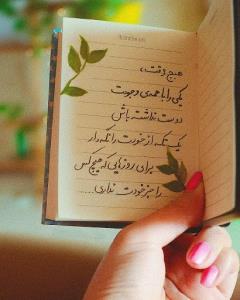 هیچ وقت،
یکی را با همه‌ی وجودت
دوست نداشته باش
یک تکه از خودت را نگه دار
برای روزهایی که هیچ کس
را جز خودت نداری.....